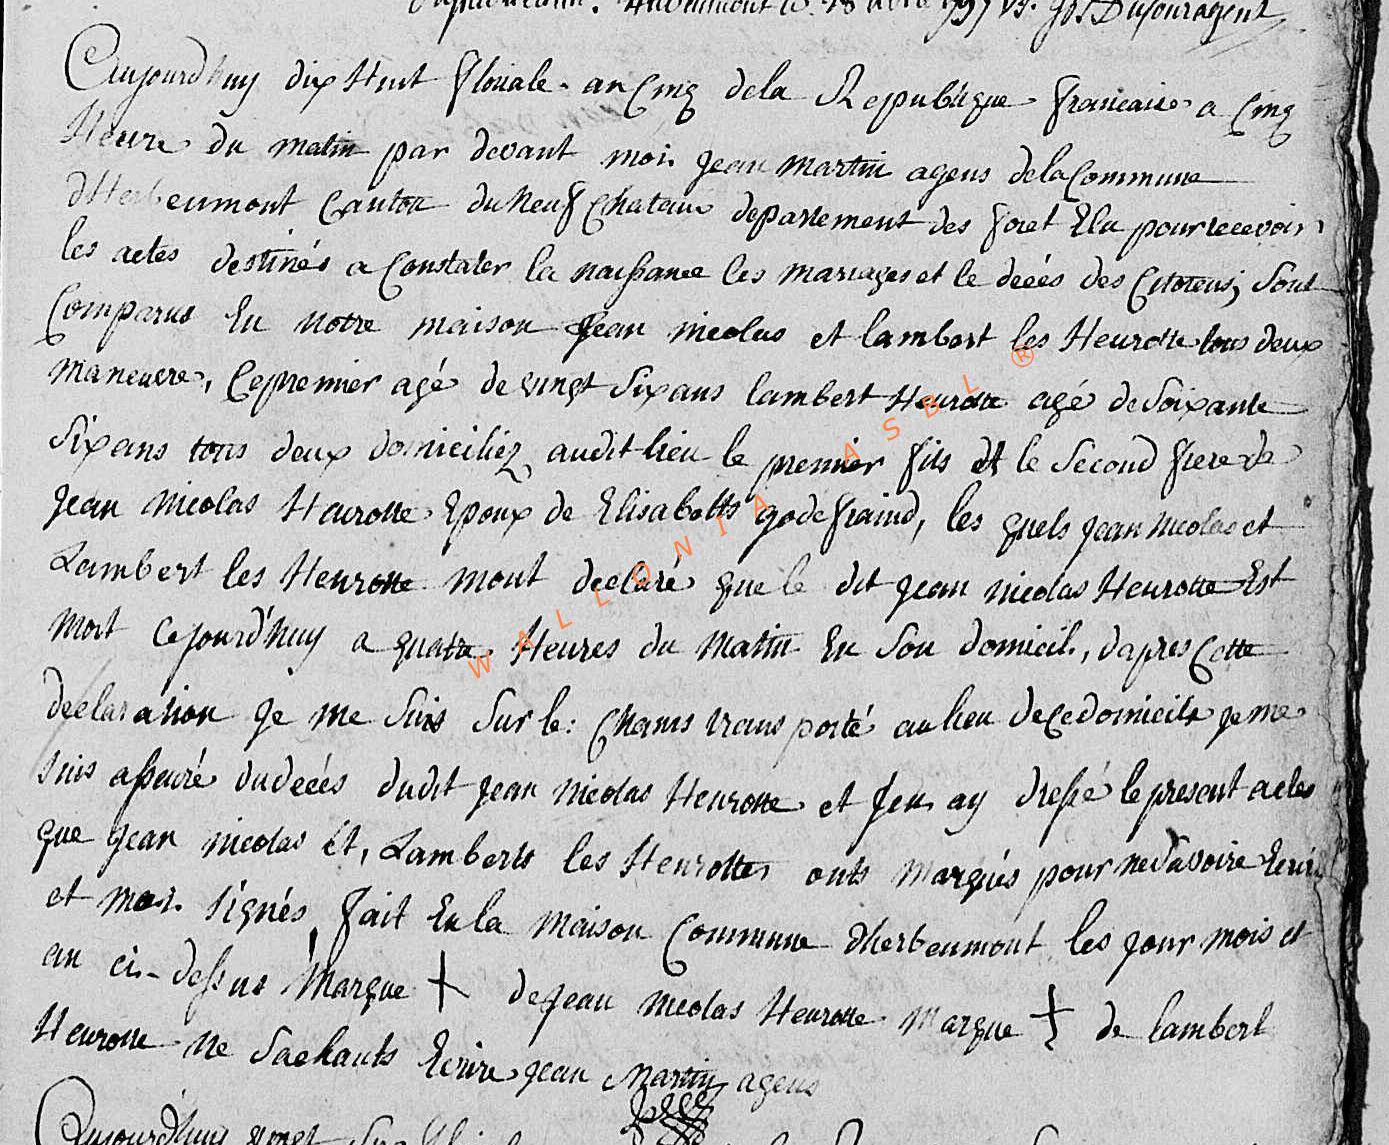 Herbeumont le 18 1797 vs. Js. Dufour agent
Aujourdhuy dix Huit floriale an Cinq dela Republique francaise a Cinq
Heure du matin par devant moi Jean Martin agens dela Commune
dHerbeumont Canton du Neufchateau departement des foret Elu pour recevoir
les actes destinés a Constater la naissance les mariages et le decés des Citotens, Sont
Comparus En notre maison Jean nicolas et lambert les Heurotte tous deux
maneuvre, Cepremier agé de vingt Six ans lambert Heurotte agé de Soixante
Six ans tous deux domiciliez audit lieu le premier fils et le Second frere de
Jean Nicolas Heurotte Epoux de Elisabetts godefraind, les quels Jean Nicolas et
Lambert les Heurotte mont declaré que le dit Jean nicolas Heurotte Est
Mort Cejourd'huy a quatre Heures du Matin En Son domicil, dapres Cette
declaration Je me Suis Sur le : Chams transporté au lieu de Ce domicile Je me
Suis assuré dudecés dudit Jean Nicolas Heurotte et Jen ay dressé le present actes
que Jean nicolas Et, Lamberts les Heurottes onts Marqués pour ne Savoire Ecrire
et moi Signés, fait En la Maison Commune dherbeumont les Jour mois et
an ci-dessus Marque + de Jean Nicolas Heurotte Marque + de lambert
Heurotte ne Sachants Ecrire Jean Martin agens
Aujourdhuy
WALLONIA ASBL ®